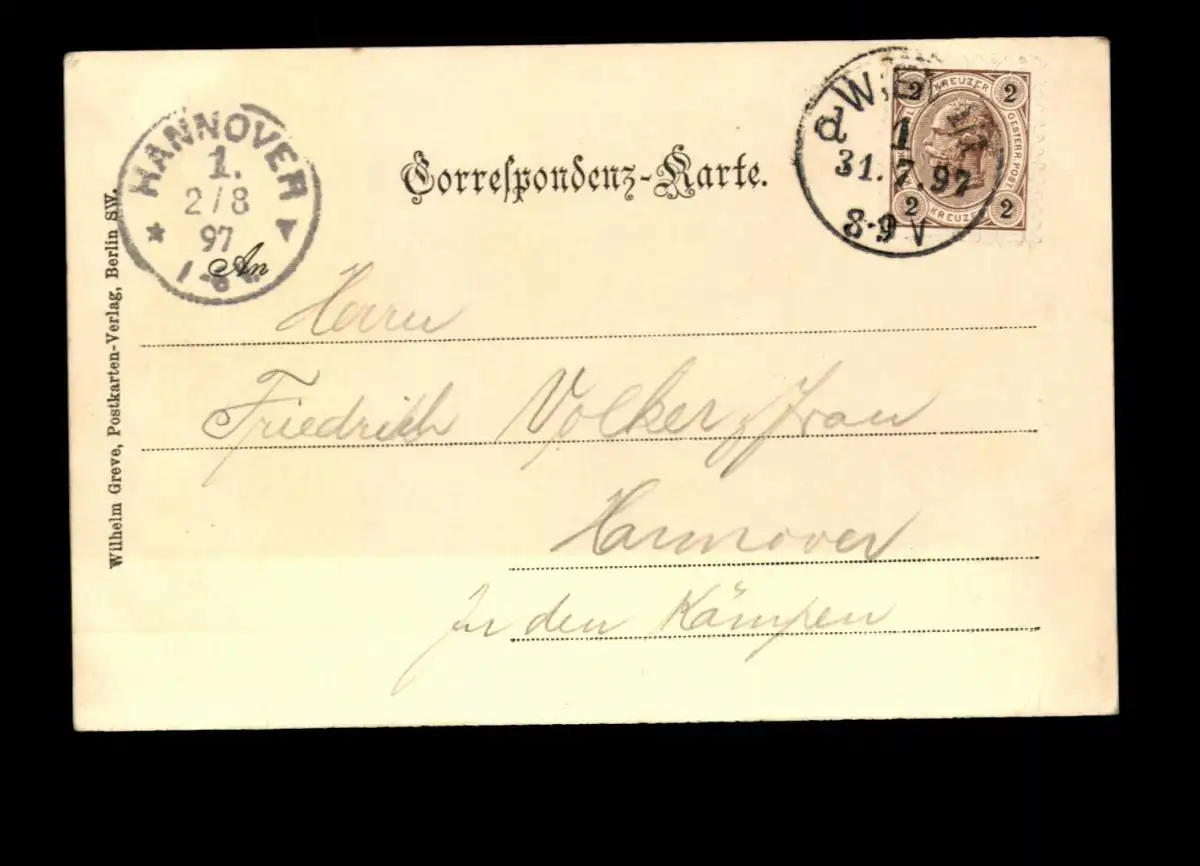 HANNOVER
1.
2/8
97
Correspondenz-Karte.
WIEN
1
d
31.7.97
8-9 V
2 KREUZER 2
OESTERR. POST.
2 KREUZER 2
An
Herrn
Friedrich Volker, Frau
Hannover
In den Kämpen
Wilhelm Greve, Postkarten-Verlag, Berlin SW.